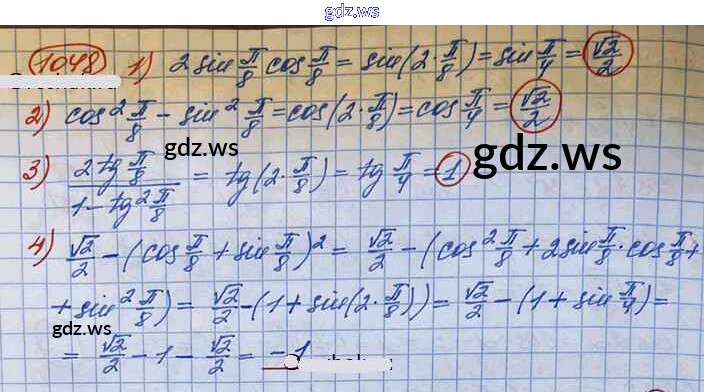 gdz.ws
1048 1) 2 sin π/8 cos π/8 = sin(2·π/8) = sin π/4 = √2/2
2) cos² π/8 - sin² π/8 = cos(2·π/8) = cos π/4 = √2/2
gdz.ws
gdz.ws
3) 2 tg π/8 / 1 - tg² π/8 = tg(2·π/8) = tg π/4 = 1
4) √2/2 - (cos π/8 + sin π/8)² = √2/2 - (cos² π/8 + 2 sin π/8 · cos π/8 +
+ sin² π/8) = √2/2 - (1 + sin(2·π/8)) = √2/2 - (1 + sin π/4) =
gdz.ws
= √2/2 - 1 - √2/2 = -1